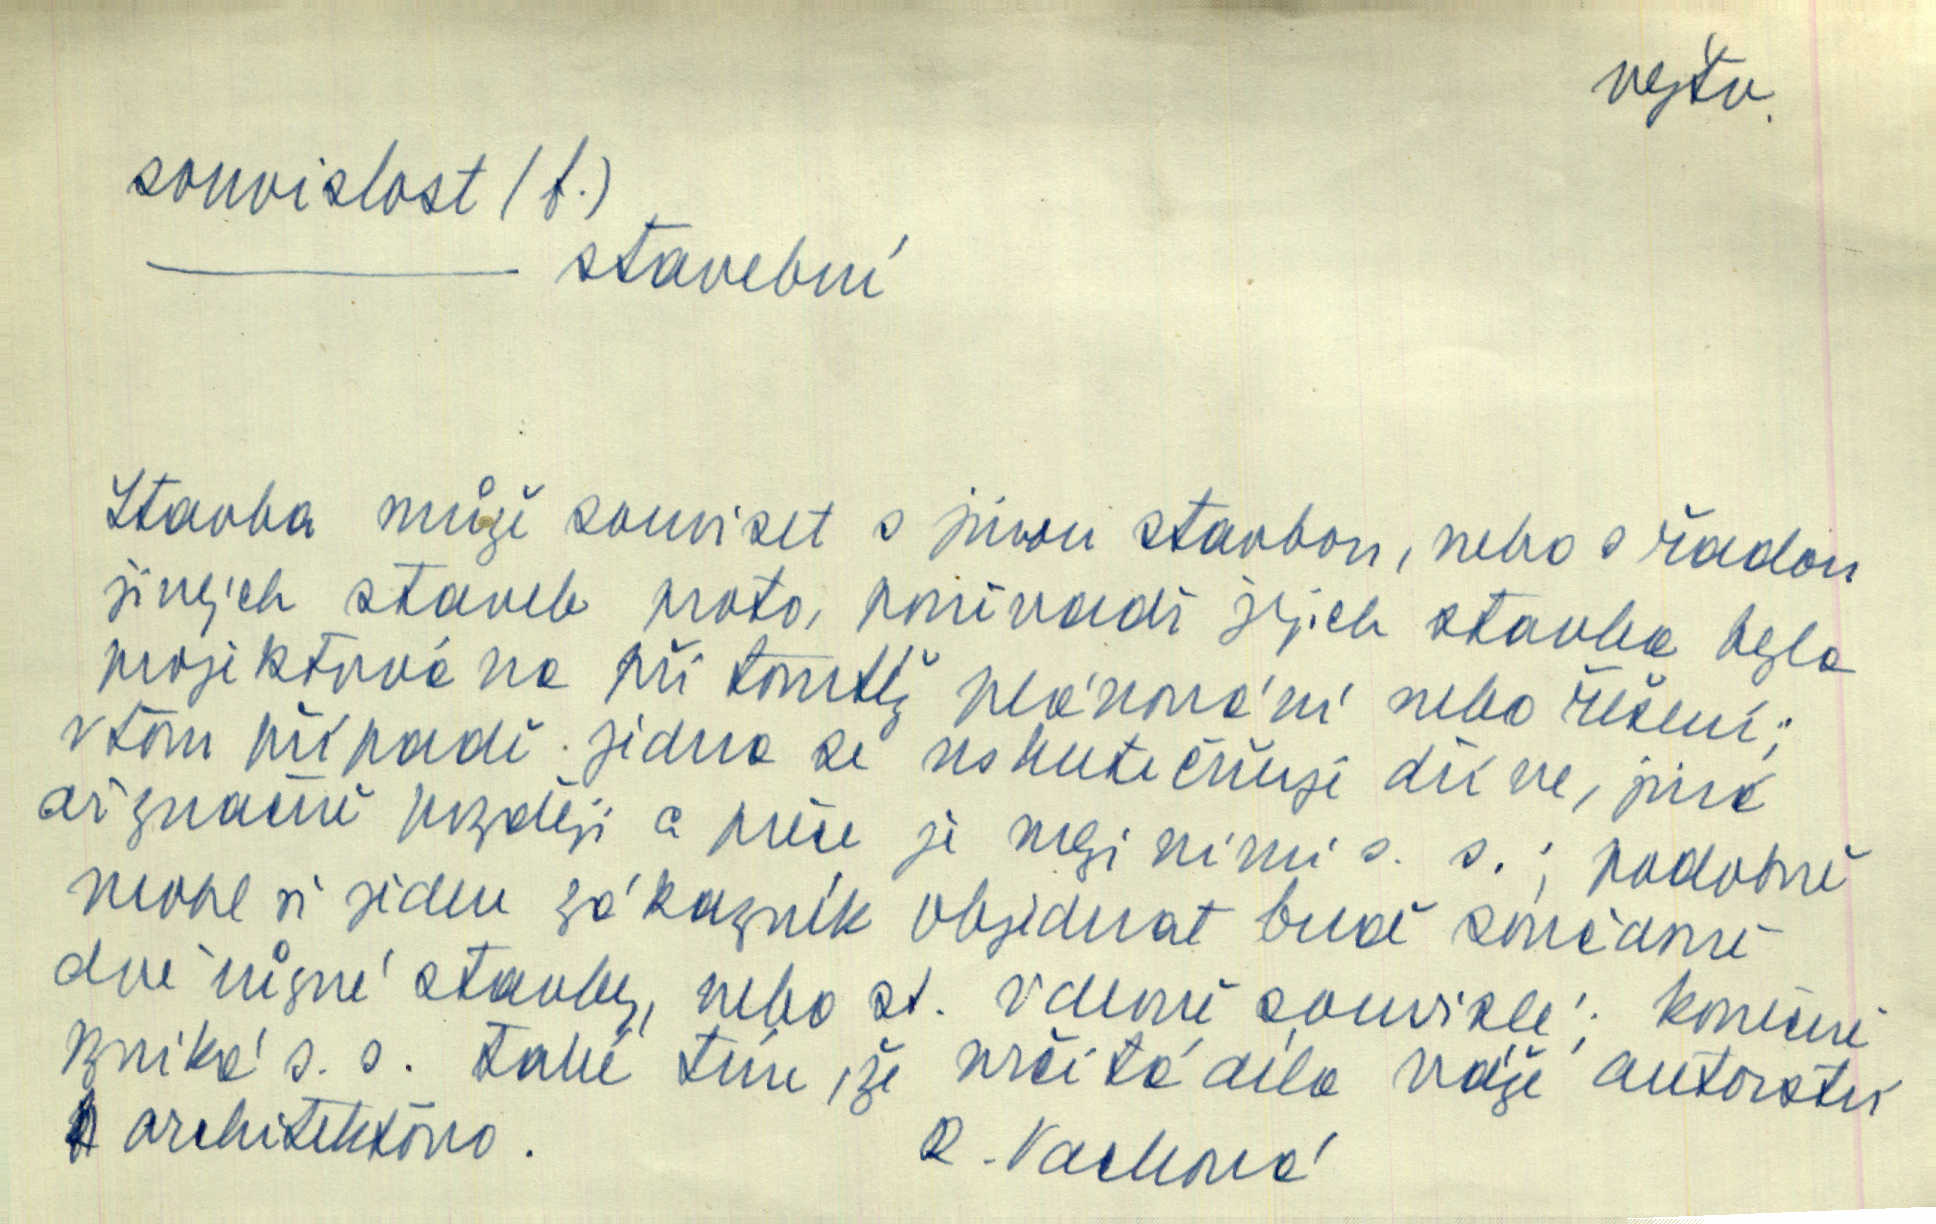 výtv.
souvislost (f.)
stavební
Stavba může souviset s jinou stavbou, nebo s řadou
jiných staveb proto, poněvadž jejich stavba byla
projektována při tomtéž plánování nebo řešení;
v tom případě jedna se uskutečňuje dříve, jiná
až značně později a přece je mezi nimi s. s.; podobně
mohl si jeden zákazník objednat buď současně
dvě různé stavby, nebo st. vdeně souvislé; konečně
vzniká s. s. také tím, že určitá díla váže autorství
architektovo.
R. Vacková